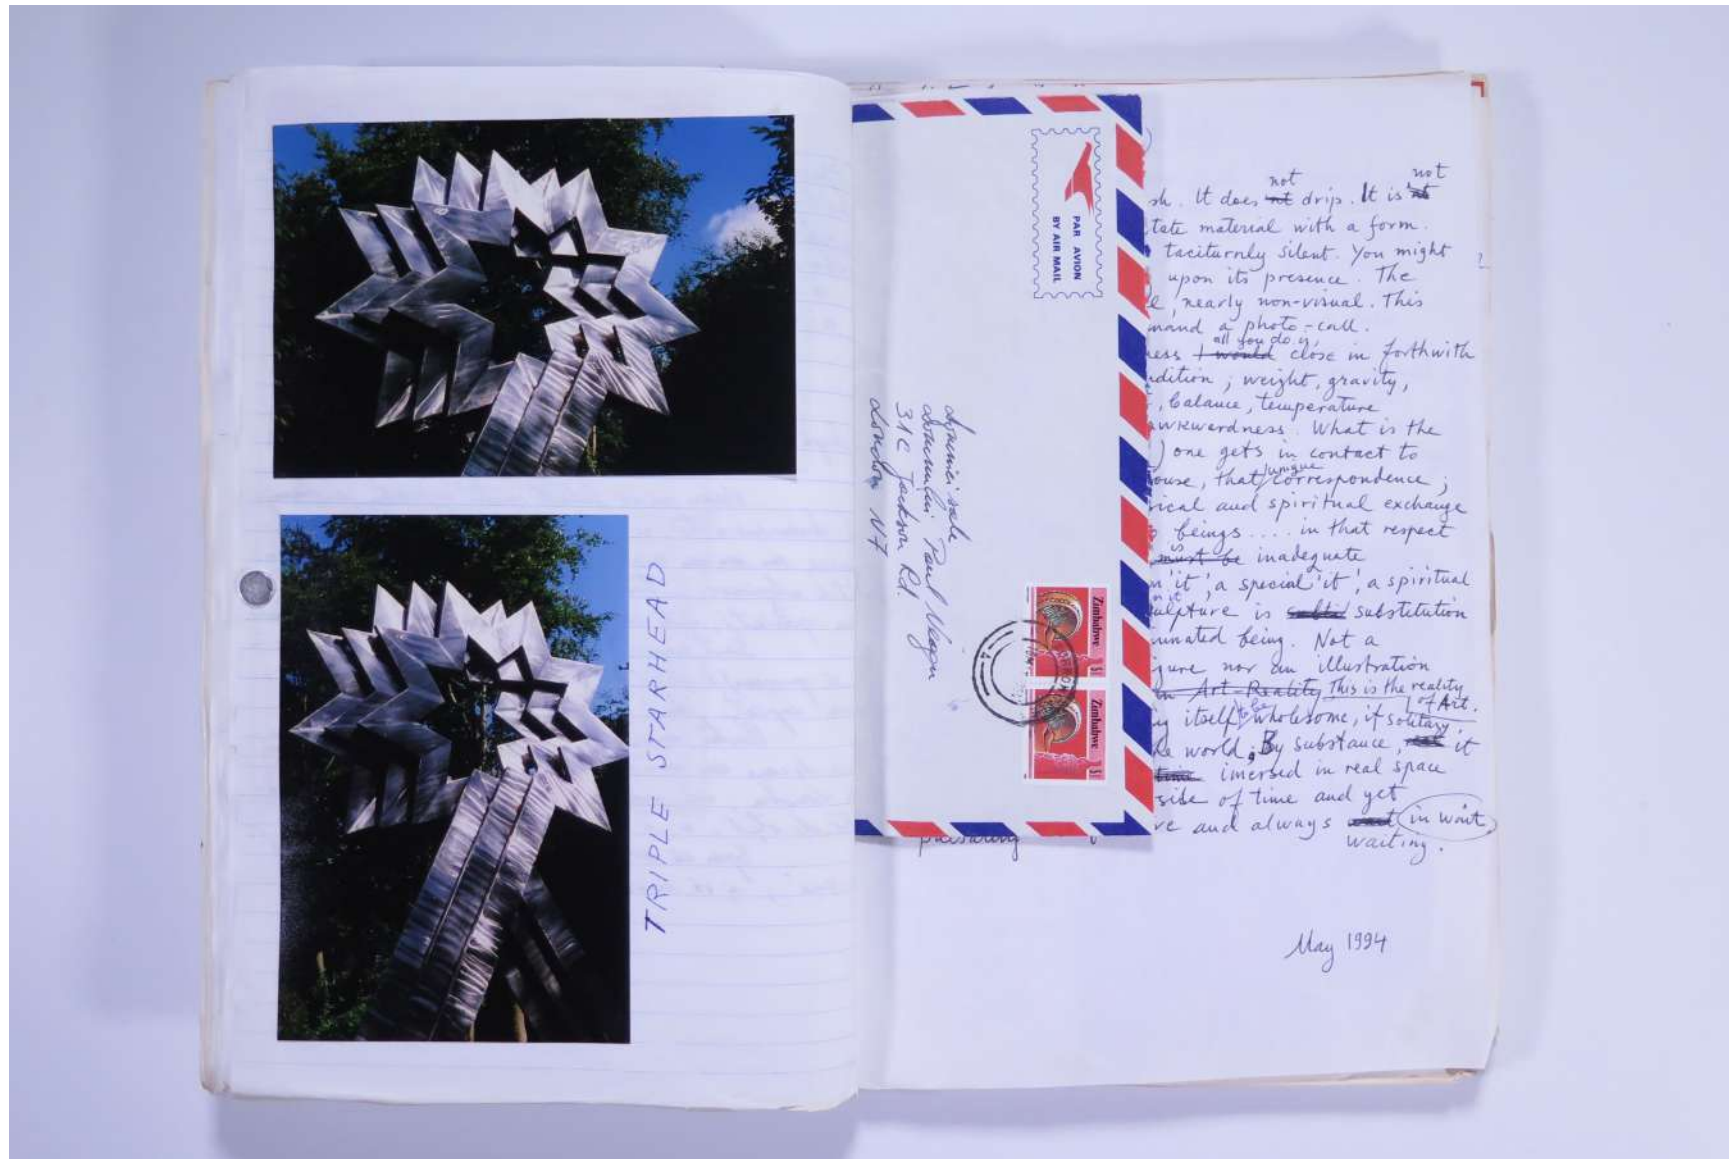 TRIPLE STARHEAD
PAR AVION
BY AIR MAIL
Paul
31C Jackson Rd.
London N7
Zimbabwe
$1
Zimbabwe
$1
not not
sh. It does not drip. It is not
tate material with a form.
taciturnly silent. You might
upon its presence. The
e, nearly non-visual. This
mand a photo-call.
all you do is,
ness I would close in forthwith
ndition; weight, gravity,
, balance, temperature
awkwardness. What is the
) one gets in contact to
unique
ouse, that correspondence;
rical and spiritual exchange
beings .... in that respect
is
must be inadequate
n 'it', a special 'it', a spiritual
ulpture is substitution
unated being. Not a
gure nor an illustration
in Art-Reality This is the reality
of Art.
to be
y itself wholesome, if solitary,
he world, By substance, it
time imersed in real space
side of time and yet
ve and always wait in wait
waiting.
May 1994